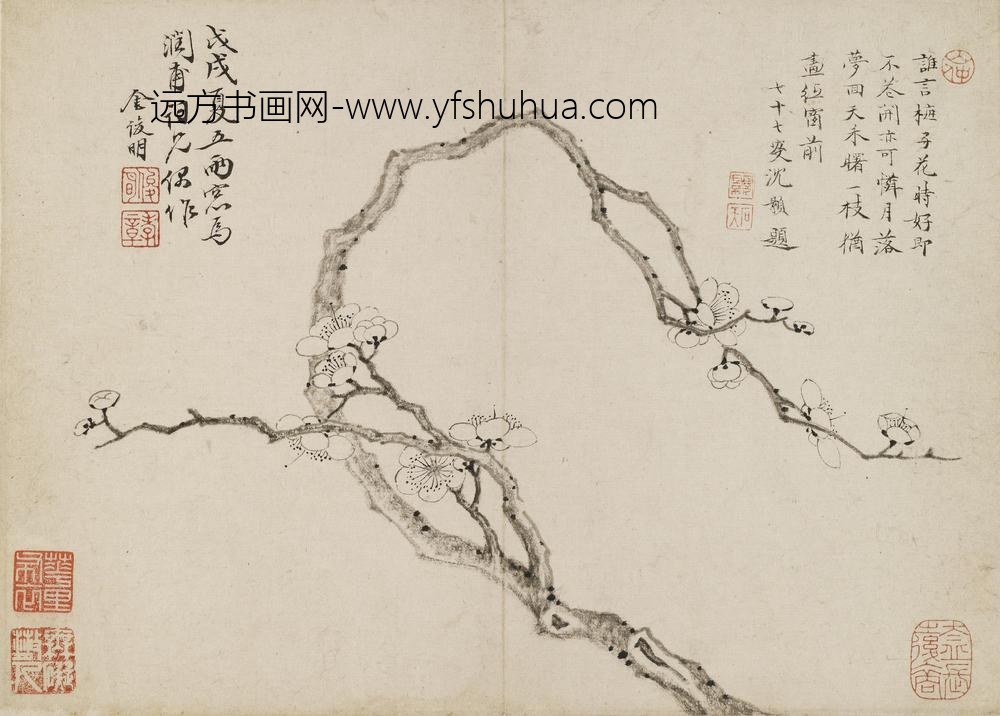 誰言梅子花時好即
不花開亦可憐月落
夢回天未曙一枝猶
畫紙窗前
七十七叟沈顥題
戊戌夏五雨窓為
潤甫兄偶作
金俊明
远方书画网-www.yfshuhua.com